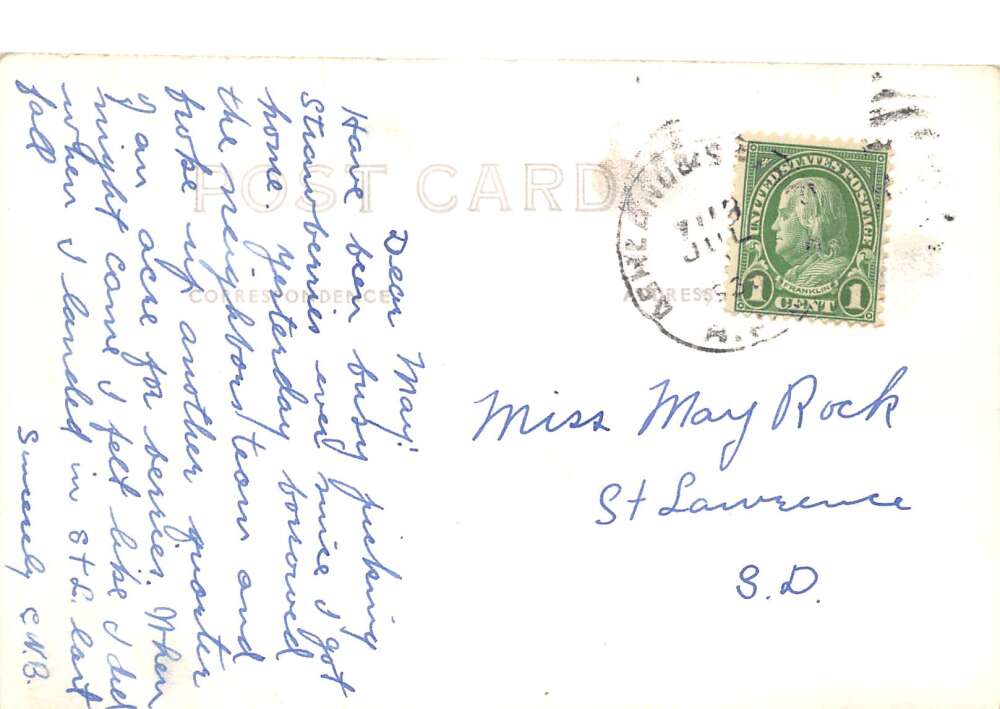 POST CARD
CORRESPONDENCE
Dear May:
Have been busy picking
strawberries ever since I got
home. Yesterday borrowed
the neighbors' team and
broke up another quarter
of an acre for berries. When
night came I felt like I did
when I landed in St L. last
fall
Sincerely C.N.B.
UNITED STATES POSTAGE
FRANKLIN
1 CENT 1
Miss May Rock
St Lawrence
S.D.